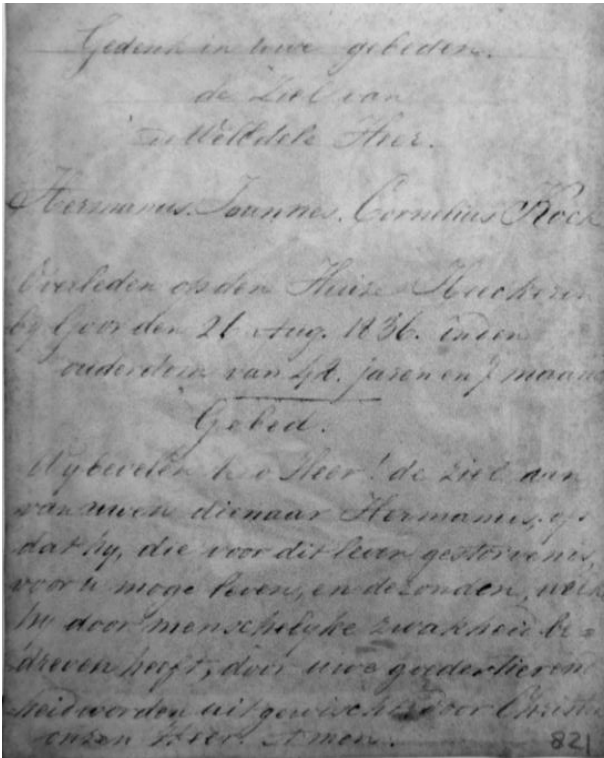 Gedenk in uwe gebeden.
de Ziel van
WelEdele Heer.
Hermanus. Joannes. Cornelius Kock
Overleden op den Huize Heeckeren
by Goor den 21 Aug. 1836. in den
ouderdom van 42. jaren en 7 maand
Gebed.
Wy bevelen U o Heer! de ziel aan
van uwen dienaar Hermanus, op
dat hy, die voor dit leven gestorven is,
voor U moge leven, en de zonden, welke
hy door menschelyke zwakheid be=
dreven heeft, door uwe goedertieren
heid worden uitgewischt door Christus
onzen Heer. Amen.
821